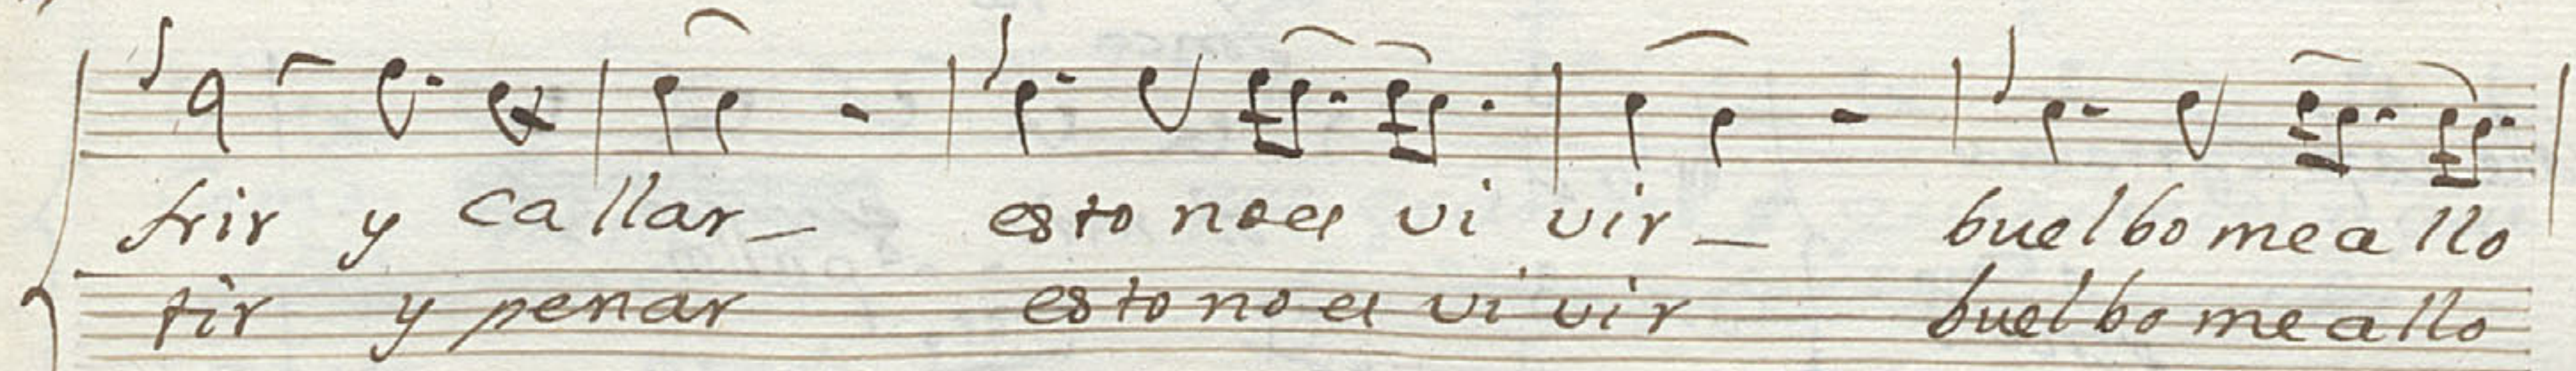 frir y callar_ esto no es vi vir_ buelbo me a llo
tir y penar esto no es vi vir buelbo me a llo